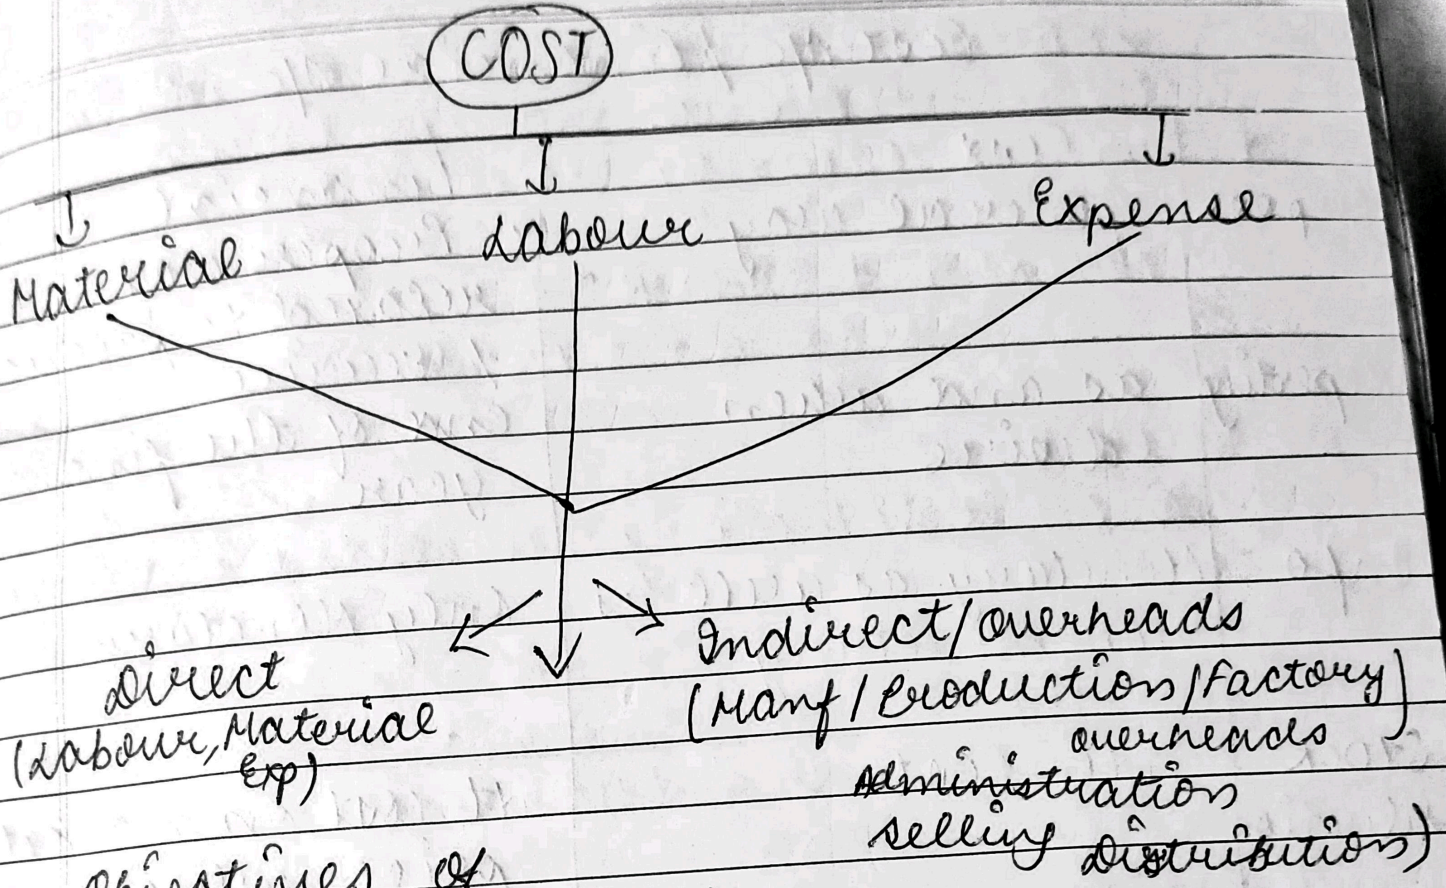 COST
Material
Labour
Expense
Direct
(Labour, Material
Exp)
Indirect/overheads
(Manf/Production/Factory)
overheads
Administration
selling Distribution)
Objectives of